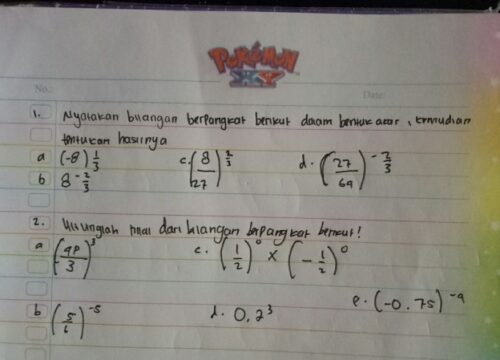 POKéMON
XY
No.: Date:
1. Nyatakan bilangan berpangkat berikut dalam bentuk akar, kemudian
tentukan hasilnya
a (-8) 1/3 c. (8/27) 2/3 d. (27/64) -2/3
b 8 -2/3
2. Hitunglah nilai dari bilangan berpangkat berikut!
a (4P/3)^3 c. (1/2)^0 × (-1/2)^0
e. (-0.75)^-4
b (5/6)^-5 d. 0,2^3